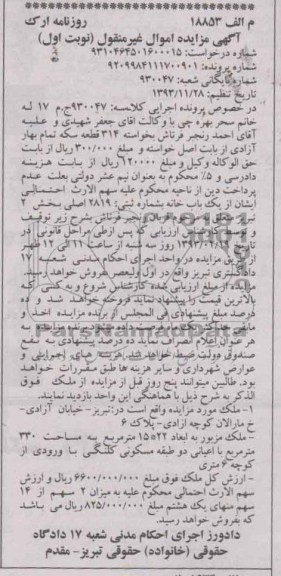 م الف ۱۸۸۵۳ روزنامه ارک
آگهی مزایده اموال غیرمنقول (نوبت اول)
شماره درخواست: ۹۳۱۰۴۶۴۵۰۱۶۰۰۰۱۵
شماره پرونده: ۹۲۰۹۹۸۴۱۱۱۷۰۰۹۰۱
شماره بایگانی شعبه: ۹۳۰۰۴۷
تاریخ تنظیم: ۱۳۹۳/۱۱/۲۸
در خصوص پرونده اجرایی کلاسه: ۹۳۰۰۴۷ج.م ۱۷ له
خانم سحر بهره چی با وکالت آقای جعفر شهیدی و علیه
آقای احمد رنجبر فرتاش بخواسته ۳۱۴ قطعه سکه تمام بهار
آزادی از بابت اصل خواسته و مبلغ ۳۰۰/۰۰۰ ریال از بابت
حق الوکاله وکیل و مبلغ ۱۲۰۰۰۰ ریال از بابت هزینه
دادرسی و ۵٪ محکوم به بعنوان نیم عشر دولتی بعلت عدم
پرداخت دین از ناحیه محکوم علیه سهم الارث احتمالی
ایشان از یک باب خانه بشماره ثبتی: ۲۸۱۹ اصلی بخش ۲
تبریز رنجبر فرتاش بشرح زیر توقیف
و ارزیابی که پس ازطی مراحل قانونی در
تاریخ روز سه شنبه از ساعت ۱۱ الی ۱۲ ظهر
از طریق مزایده در واحد اجرای احکام مدنی شعبه ۱۷
دادگستری تبریز واقع در اول ولیعصر بفروش خواهد رسید.
مزایده از مبلغ ارزیابی شده کارشناس شروع و به کسی که
بالاترین قیمت را پیشنهاد نماید فروخته خواهد شد و ده
درصد مبلغ پیشنهادی فی المجلس از برنده مزایده اخذ و
هر عنوان اعلام انصراف نماید ده درصد پیشنهادی به نفع
صندوق دولت ضبط خواهد شد. هزینه های اجرایی و
عوارض شهرداری و سایر هزینه ها طبق مقررات خواهد
بود. طالبین میتوانند پنج روز قبل از مزایده از ملک فوق
الذکر به شرح ذیل با هماهنگی این واحد بازدید نمایند.
۱- ملک مورد مزایده واقع است در: تبریز- خیابان آزادی-
خ مارالان کوچه ازادی- پلاک ۶
- ملک مزبور به ابعاد ۲۲*۱۵ مترمربع به مساحت ۳۳۰
مترمربع با اعیانی دو طبقه مسکونی کلنگی با ورودی از
کوچه ۶ متری
- ارزش کل ملک فوق مبلغ ۶۶۰۰/۰۰۰/۰۰۰ ریال و ارزش
سهم الارث احتمالی محکوم علیه به میزان ۲ سهم از ۱۴
سهم منهای یک هشتم مبلغ ۸۲۵/۰۰۰/۰۰۰ ریال می باشد
که بفروش خواهد رسید.
دادورز اجرای احکام مدنی شعبه ۱۷ دادگاه
حقوقی (خانواده) حقوقی تبریز- مقدم